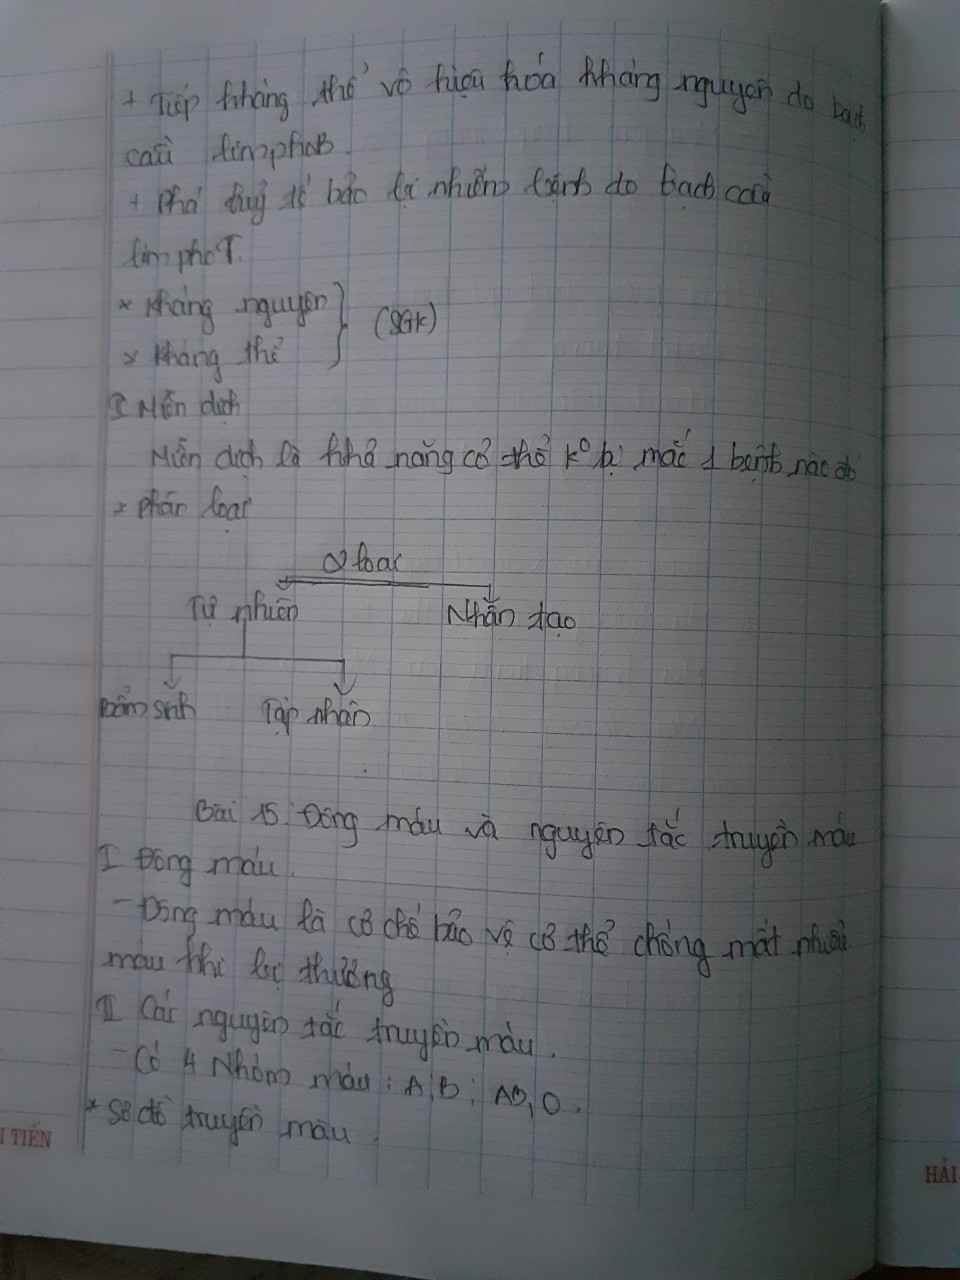 + Tiếp kháng thể vô hiệu hóa kháng nguyên do bạch
cầu limphoB
+ Phá huỷ tế bào bị nhiễm bệnh do bạch cầu
limphoT.
* Kháng nguyên
* Kháng thể
(SGK)
I Miễn dịch
Miễn dịch là khả năng cơ thể k° bị mắc 1 bệnh nào đó
* Phân loại
2 loại
Tự nhiên
Nhân tạo
Bẩm sinh
Tập nhân
Bài 15: Đông máu và nguyên tắc truyền máu
I Đông máu.
- Đông máu là cơ chế bảo vệ cơ thể chống mất nhiều
máu khi bị thương
II Các nguyên tắc truyền máu.
- Có 4 Nhóm máu: A, B, AB, O.
* Sơ đồ truyền máu.
I TIẾN
HẢI